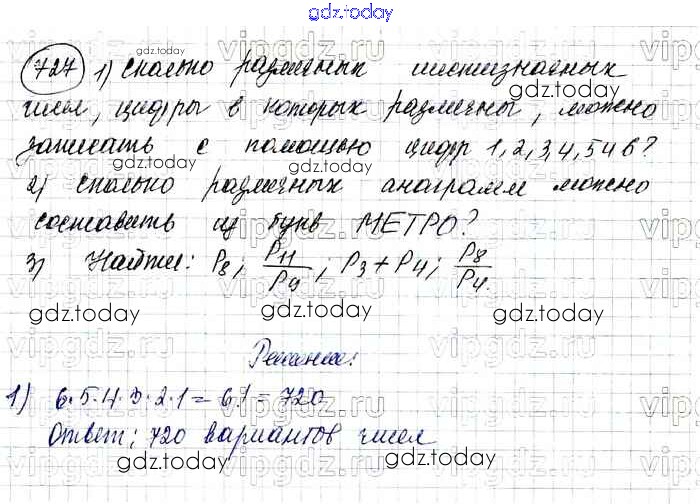 gdz.today
727 1) Сколько различных шестизначных
чисел, цифры в которых различны, можно
записать с помощью цифр 1,2,3,4,5 и 6?
2) Сколько различных анаграмм можно
составить из букв МЕТРО?
3) Найти: P8; P11/P9; P3+P4; P8/P4.
gdz.today gdz.today gdz.today
Решение:
1) 6·5·4·3·2·1=6!=720
Ответ: 720 вариантов чисел
gdz.today gdz.today